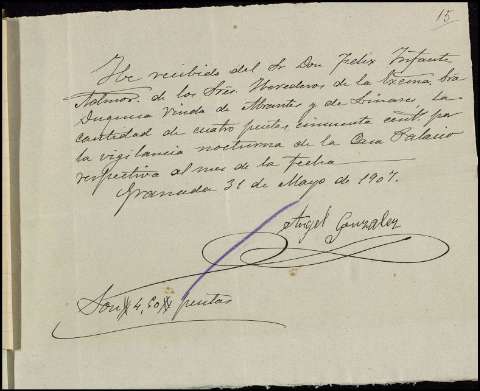 15
He recibido del Sr Don Felix Infante
Admor. de los Sres Herederos de la Excma. Sra
Duquesa Viuda de Abrantes y de Linares, la
cantidad de cuatro pesetas cincuenta cents por
la vigilancia nocturna de la Casa Palacio
respectiva al mes de la fecha
Granada 31 de Mayo de 1907.
Angel Gonzalez
Son # 4,50 # pesetas